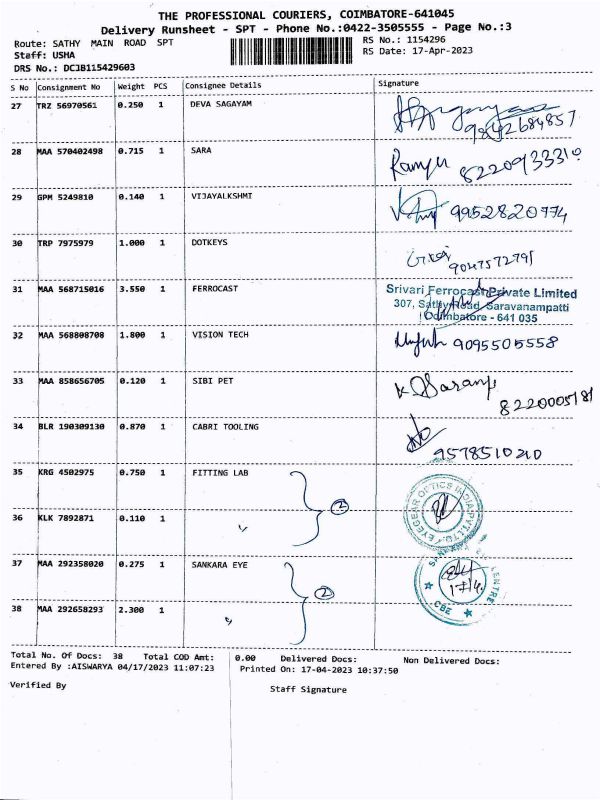 THE PROFESSIONAL COURIERS, COIMBATORE-641045
Delivery Runsheet - SPT - Phone No.:0422-3505555 - Page No.:3
Route: SATHY MAIN ROAD SPT
RS No.: 1154296
Staff: USHA
RS Date: 17-Apr-2023
DRS No.: DCJB115429603
S No Consignment No Weight PCS Consignee Details Signature
27 TRZ 56970561 0.250 1 DEVA SAGAYAM
9842684857
28 MAA 570402498 0.715 1 SARA
8220933310
29 GPM 5249810 0.140 1 VIJAYALKSHMI
9952820774
30 TRP 7975979 1.000 1 DOTKEYS
31 MAA 568715016 3.550 1 FERROCAST
Srivari Ferrocast Private Limited
307, Sathy Road, Saravanampatti
Coimbatore - 641 035
32 MAA 568808708 1.800 1 VISION TECH
9095505558
33 MAA 858656705 0.120 1 SIBI PET
34 BLR 190309130 0.870 1 CABRI TOOLING
9578510210
35 KRG 4502975 0.750 1 FITTING LAB
2
EYEGEAR OPTICS INDIA PVT.LTD.
36 KLK 7892871 0.110 1 "
37 MAA 292358020 0.275 1 SANKARA EYE
2
CBE
38 MAA 292658293 2.300 1 "
Total No. Of Docs: 38 Total COD Amt: 0.00 Delivered Docs: Non Delivered Docs:
Entered By :AISWARYA 04/17/2023 11:07:23 Printed On: 17-04-2023 10:37:50
Verified By
Staff Signature